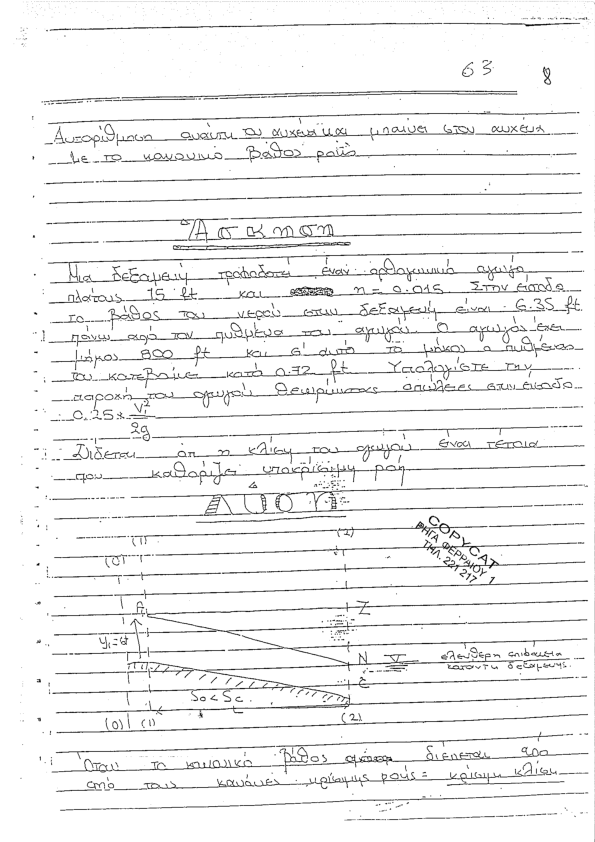 63 8
Αυτορίθμιση ανάντη του αυχένα και μπαίνει στον αυχένα
με το κανονικό βάθος ροής.
Άσκηση
Μια δεξαμενή τροφοδοτεί έναν ορθογωνικό αγωγό
πλάτους 15 ft και n = 0.015. Στην είσοδο
το βάθος του νερού στην δεξαμενή είναι 6.35 ft
πάνω από τον πυθμένα του αγωγού. Ο αγωγός έχει
μήκος 800 ft και σ' αυτό το μήκος ο πυθμένας
του κατεβαίνει κατά 0.72 ft. Υπολογίστε την
παροχή του αγωγού θεωρώντας απώλειες στην είσοδο
0.25* V₁²
2g
Δίδεται ότι η κλίση του αγωγού είναι τέτοια
που καθορίζει υποκρίσιμη ροή
Λύση
(1) (2)
(0)
COPYCAT
ΡΗΓΑ ΦΕΡΡΑΙΟΥ 1
ΤΗΛ. 221 217
A Z
N ελεύθερη επιφάνεια
κατάντη δεξαμενής.
C
So < Sc
L
(0) (1) (2)
Όταν το κανονικό βάθος διέπεται από
από τους κανόνες κρίσιμης ροής = κρίσιμη κλίση